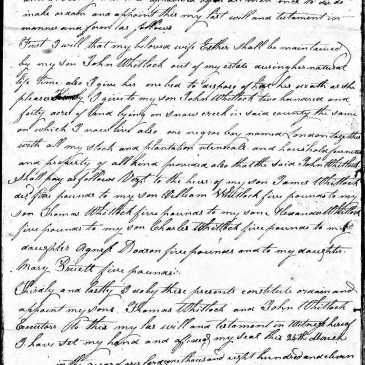 make ordain and appoint this my last will and testament in
manner and form as follows
First I will that my beloved wife Esther shall be maintained
by my son John Whitlock out of my estate during her natural
life time also I give her one bed to dispose of at her death as she
please I give to my son John Whitlock two hundred and
forty acres of land lying on snow creek in said county the same
on which I now live also one negro boy named London together
with all my stock and plantation utensials and household furniture
and property of all kind provided also that the said John Whitlock
shall pay as follows Vizt to the heirs of my son James Whitlock
decd five pounds to my son William Whitlock five pounds to my
son Thomas Whitlock five pounds to my son Alexander Whitlock
five pounds to my son Charles Whitlock five pounds to my
daughter Agness Dodson five pounds and to my daughter
Mary Pruett five pounds.
Thirdly and lastly I do by these presents constitute ordain and
appoint my sons Thomas Whitlock and John Whitlock
Executors to this my las will and testament in witness hereof
I have set my hand and affixed my seal this 26th March
in the year of our Lord one thousand and eight hundred and eleven